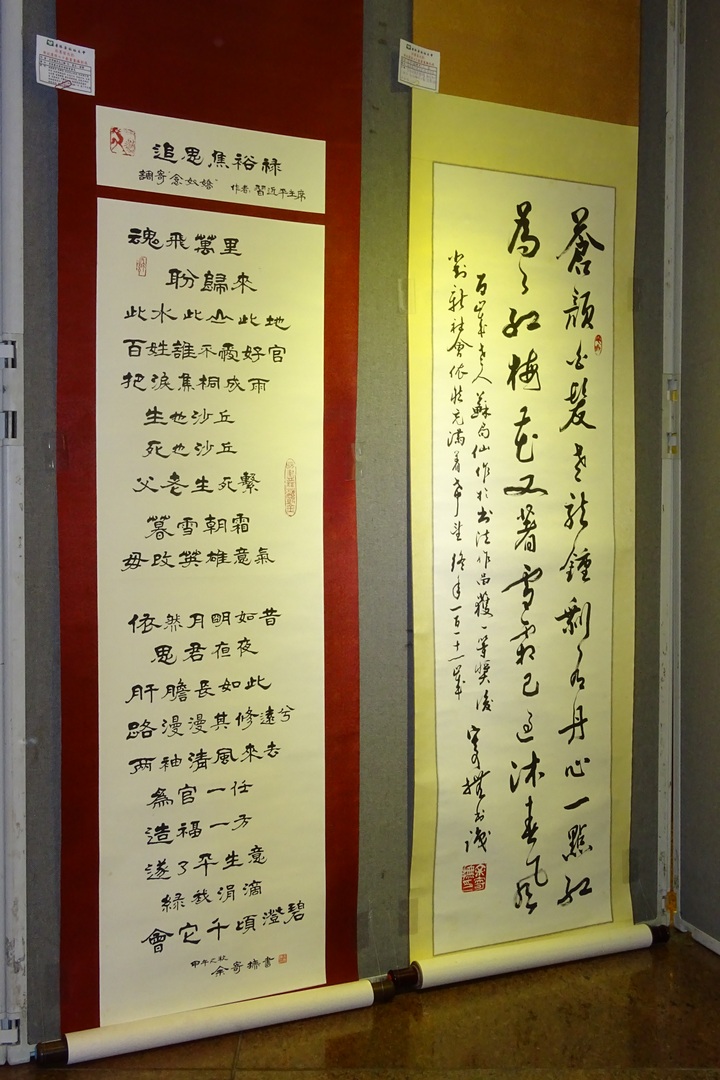 追思焦裕祿
調寄“念奴嬌” 作者 習近平主席
魂飛萬里
盼歸來
此水此山此地
百姓誰不愛好官
把淚焦桐成雨
生也沙丘
死也沙丘
父老生死繫
暮雪朝霜
毋改英雄意氣
依然月明如昔
思君夜夜
肝膽長如此
路漫漫其修遠兮
兩袖清風來去
為官一任
造福一方
遂了平生意
綠我涓滴
會它千頃澄碧
甲午之秋
余寄撫書
蒼顏白髮老龍鍾剩有丹心一點紅
為問紅梅花又著雪霜已過沐春風
百歲老人蘇局仙作於書法作品獲一等獎後
對新社會依然充滿着希望終年一百一十歲
寄撫書識